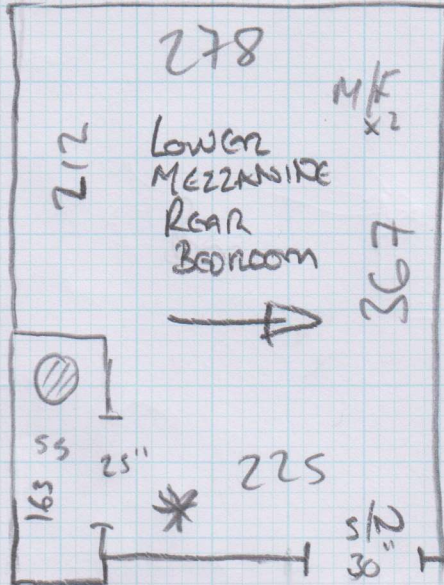 278
M/F
x2
212
LOWER
MEZZANINE
REAR
BEDROOM
367
55
25"
163
225
S/N
30"